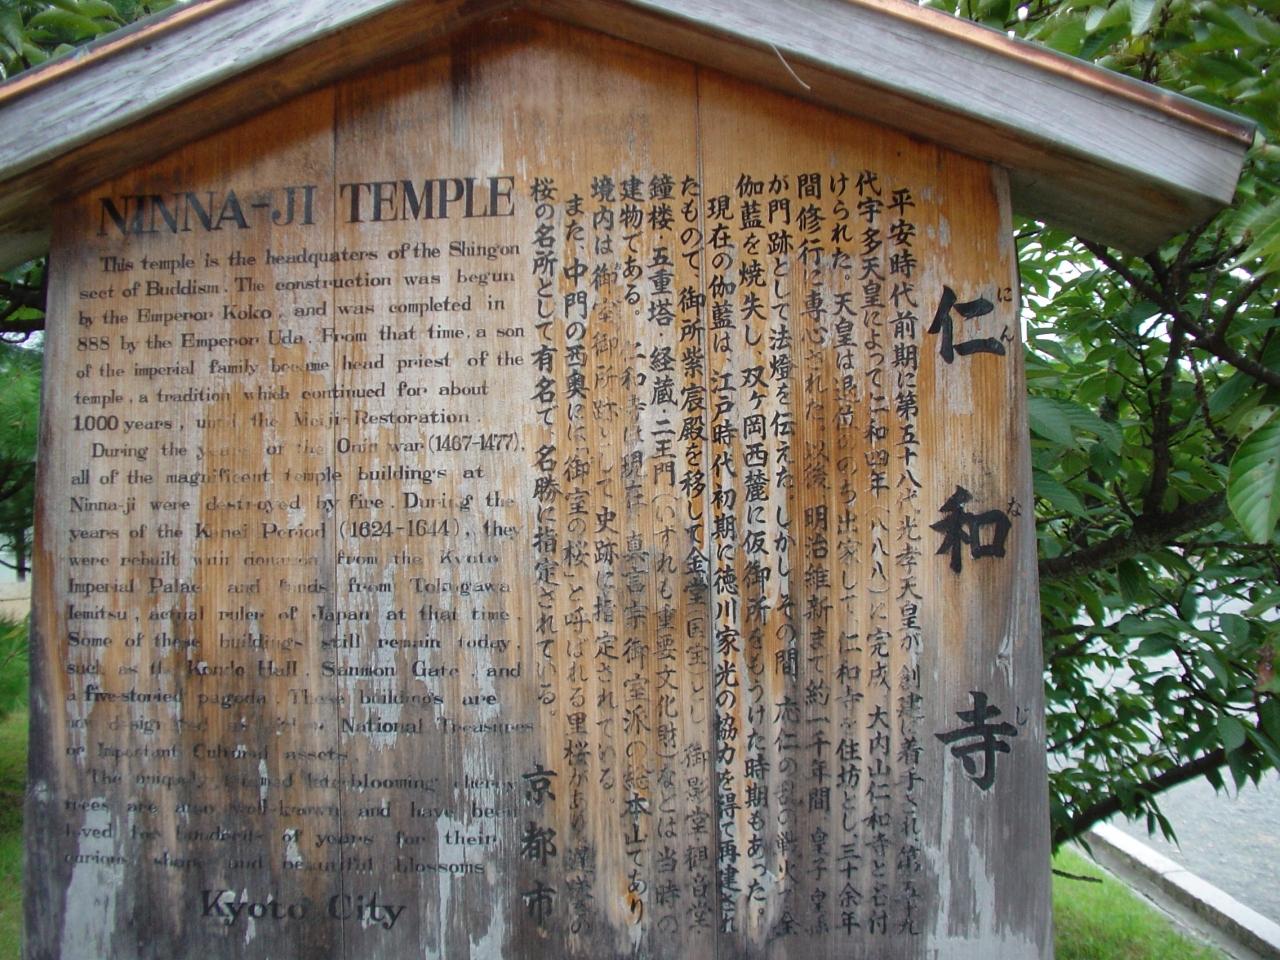 NINNA-JI TEMPLE
This temple is the headquaters of the Shingon
sect of Buddism. The construction was begun
by the Emperor Koko, and was completed in
888 by the Emperor Uda. From that time, a son
of the imperial family became head priest of the
temple, a tradition which continued for about
1,000 years, until the Meiji Restoration.
During the years of the Onin war (1467-1477),
all of the magnificent temple buildings at
Ninna-ji were destroyed by fire. During the
years of the Kanei Period (1624-1644), they
were rebuilt with from the Kyoto
Imperial Palace and funds from Tokugawa
Iemitsu, actual ruler of Japan at that time.
Some of these buildings still remain today,
such as the Kondo Hall, Sanmon Gate, and
a five-storied pagoda. These buildings are
now designated as either National Treasures
or Important Cultural assets.
The uniquely late-blooming cherry
trees are also well-known and have been
loved for hundreds of years for their
curious shape and beautiful blossoms.
Kyoto City
仁和寺
にんなじ
平安時代前期に第五十八代光孝天皇が創建に着手され第五十九
代宇多天皇によって仁和四年（八八八）に完成、大内山仁和寺と名付
けられた。天皇は退位ののち出家して仁和寺を住坊とし、三十余年
間修行に専心された以後、明治維新まで約一千年間、皇子皇孫
が門跡として法燈を伝えた。しかし、その間、応仁の乱の戦火で全
伽藍を焼失し、双ヶ岡西麓に仮御所をもうけた時期もあった。
現在の伽藍は、江戸時代初期に徳川家光の協力を得て再建され
たもので、御所紫宸殿を移して金堂（国宝）とし、御影堂、観音堂、
鐘楼、五重塔、経蔵、二王門（いずれも重要文化財）などは当時の
建物である。仁和寺は現在、真言宗御室派の総本山であり、
境内は御室御所跡として史跡に指定されている。
また、中門の西奥には、「御室の桜」と呼ばれる里桜があり、遅咲きの
桜の名所として有名で、名勝に指定されている。
京都市